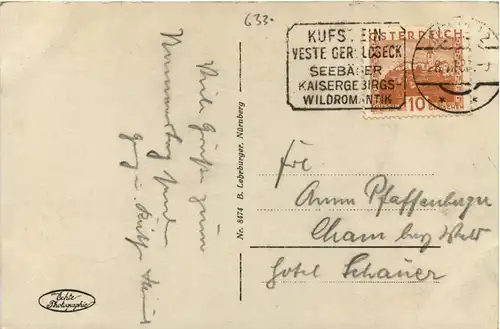 633.
KUFSTEIN
VESTE GEROLDSECK
SEEBÄDER
KAISERGEBIRGS-
WILDROMANTIK
ÖSTERREICH
10
Viele Grüße zum
Namenstag
Nr. 8474 B. Lehrburger, Nürnberg
Frl.
Anna Pfaffenberger
Cham bay Wald
Hotel Schauer
Echte
Photographie